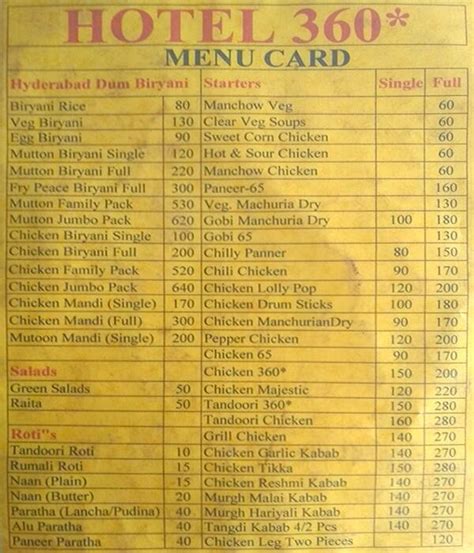 HOTEL 360*
MENU CARD
Hyderabad Dum Biryani
Biryani Rice 80
Veg Biryani 130
Egg Biryani 90
Mutton Biryani Single 120
Mutton Biryani Full 220
Fry Peace Biryani Full 300
Mutton Family Pack 530
Mutton Jumbo Pack 620
Chicken Biryani Single 100
Chicken Biryani Full 200
Chicken Family Pack 520
Chicken Jumbo Pack 640
Chicken Mandi (Single) 170
Chicken Mandi (Full) 300
Mutoon Mandi (Single) 200
Salads
Green Salads 50
Raita 50
Roti"s
Tandoori Roti 10
Rumali Roti 15
Naan (Plain) 15
Naan (Butter) 20
Paratha (Lancha/Pudina) 40
Alu Paratha 40
Paneer Paratha 40
Starters Single Full
Manchow Veg 60
Clear Veg Soups 60
Sweet Corn Chicken 60
Hot & Sour Chicken 60
Manchow Chicken 60
Paneer-65 160
Veg. Machuria Dry 130
Gobi Manchuria Dry 100 180
Gobi 65 130
Chilly Panner 80 150
Chili Chicken 90 170
Chicken Lolly Pop 120 200
Chicken Drum Sticks 100 180
Chicken ManchurianDry 90 170
Pepper Chicken 120 200
Chicken 65 90 170
Chicken 360* 150 200
Chicken Majestic 120 220
Tandoori 360* 150 280
Tandoori Chicken 160 280
Grill Chicken 140 270
Chicken Garlic Kabab 140 270
Chicken Tikka 150 280
Chicken Reshmi Kabab 140 270
Murgh Malai Kabab 140 270
Murgh Hariyali Kabab 140 270
Tangdi Kabab 4/2 Pcs 140 270
Chicken Leg Two Pieces 120